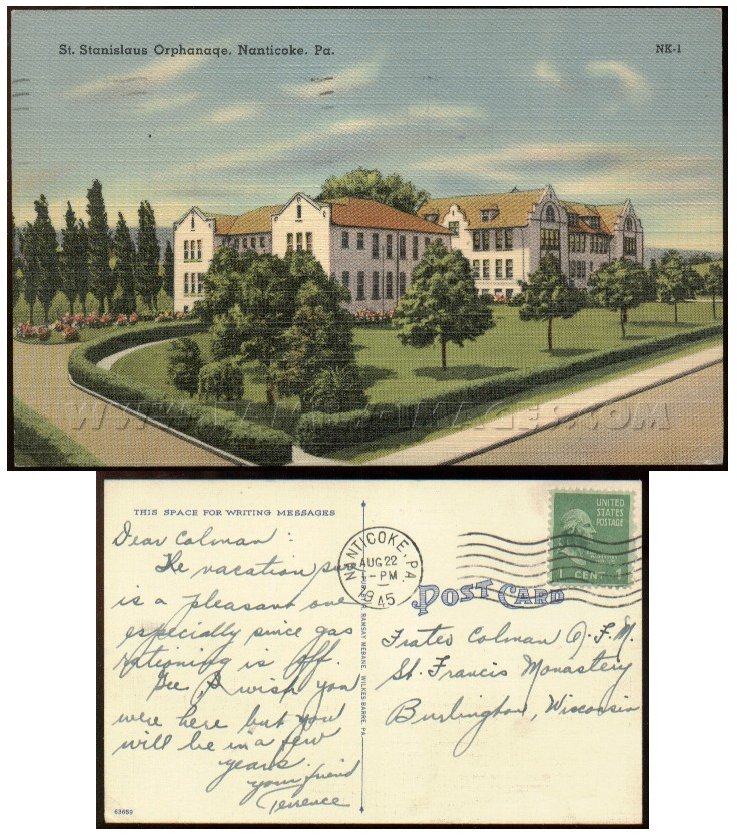 St. Stanislaus Orphanage, Nanticoke, Pa.
NK-1
THIS SPACE FOR WRITING MESSAGES
Dear Colman:
The vacation
is a pleasant one
especially since gas
rationing is off.
Gee, I wish you
were here but you
will be in a few
years.
your friend
Terrence
63659
RAMSAY MEBANE, WILKES BARRE, PA.
NANTICOKE, PA
AUG 22
1-PM
1945
UNITED
STATES
POSTAGE
1 CENT 1
POST CARD
Frater Colman O.F.M.
St. Francis Monastery
Burlington, Wisconsin